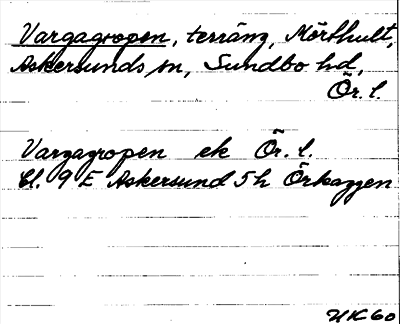 Vargagropen, terräng, Mörthult,
Askersunds sn, Sundbo hd,
Ör. l.
Vargagropen ek Ör. l.
Bl. 9 E Askersund 5 h Örkaggen
HK 60